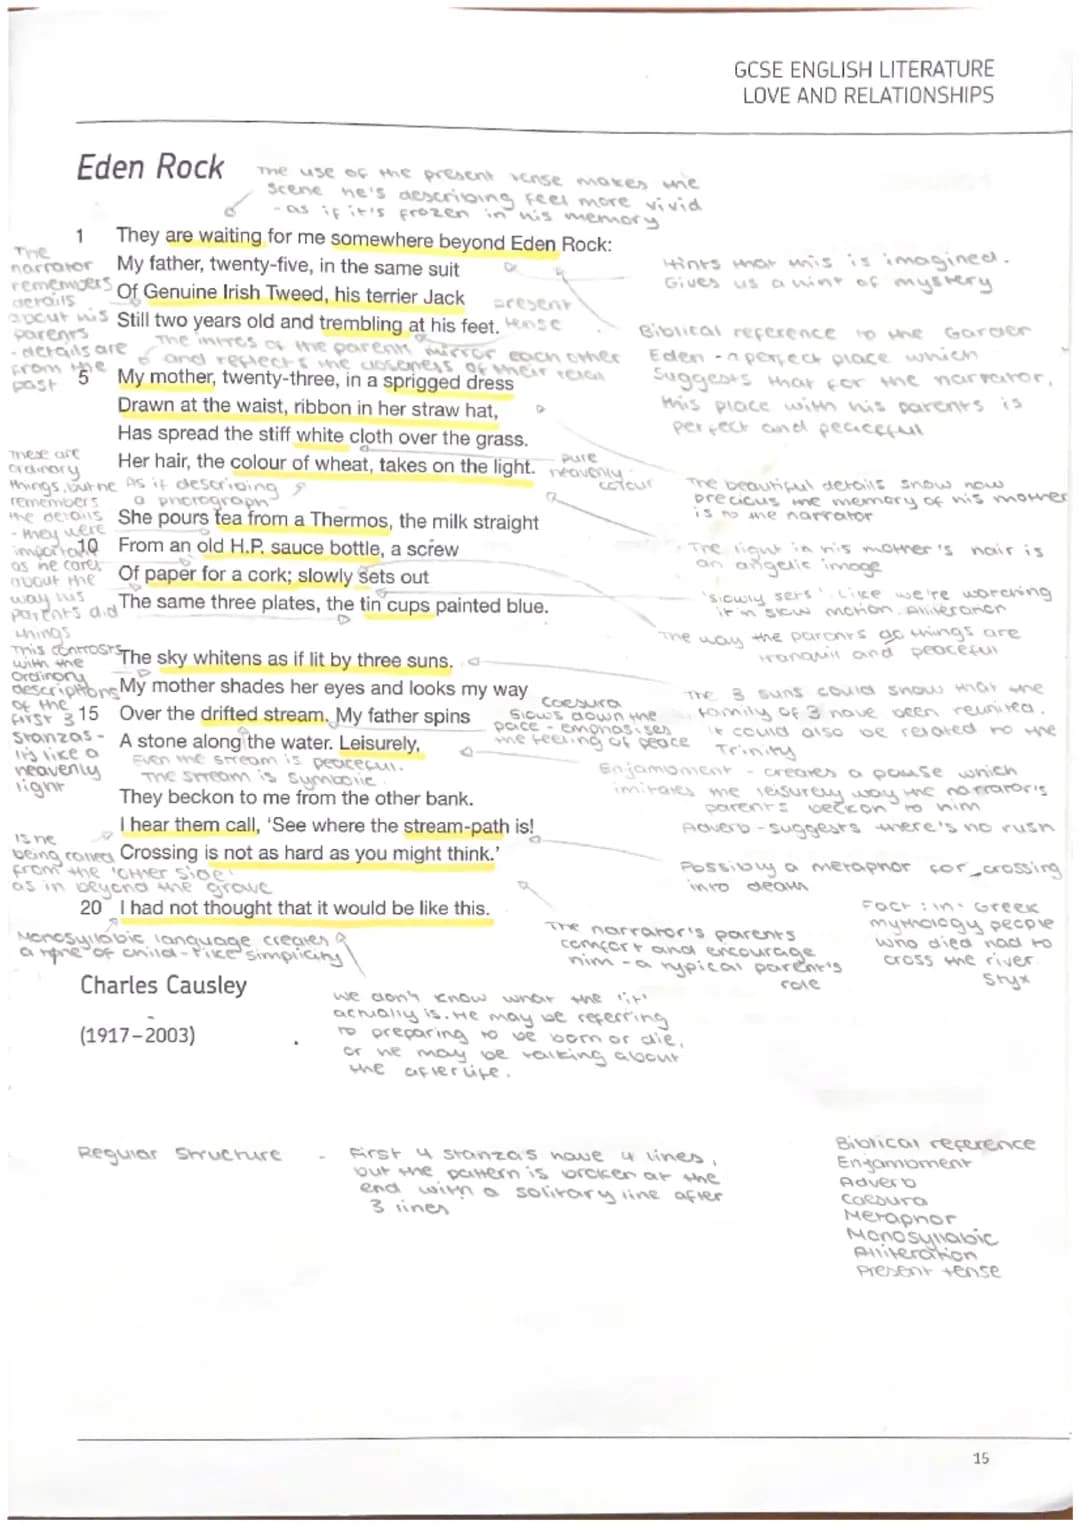 GCSE ENGLISH LITERATURE
LOVE AND RELATIONSHIPS
Eden Rock
The use of the present tense makes the
scene he's describing feel more vivid
- as if it's frozen in his memory
1 They are waiting for me somewhere beyond Eden Rock:
My father, twenty-five, in the same suit
Of Genuine Irish Tweed, his terrier Jack
Still two years old and trembling at his feet.
present
tense
The
narrator
remembers
details
about his
parents
- details are
from the
past
Hints that this is imagined.
Gives us a hint of mystery
The intros of the parents mirror each other
and reflects the closeness of their
5 My mother, twenty-three, in a sprigged dress
Drawn at the waist, ribbon in her straw hat,
Has spread the stiff white cloth over the grass.
Her hair, the colour of wheat, takes on the light.
Biblical reference to the Garden
Eden - a perfect place which
suggests that for the narrator,
this place with his parents is
perfect and peaceful
pure
heavenly
colour
As if describing
a photograph
These are
ordinary
things, but he
remembers
the details
- they were
important
as he cares
about the
way his
parents did
things
The beautiful details show how
precious the memory of his mother
is to the narrator
She pours tea from a Thermos, the milk straight
10 From an old H.P. sauce bottle, a screw
Of paper for a cork; slowly sets out
The same three plates, the tin cups painted blue.
The light in his mother's hair is
an angelic image
'slowly sets'. Like we're watching
it in slow motion. Alliteration
The way the parents do things are
tranquil and peaceful
The sky whitens as if lit by three suns.
My mother shades her eyes and looks my way
15 Over the drifted stream. My father spins
A stone along the water. Leisurely,
This contrasts
with the
ordinary
descriptions
of the
first 3
stanzas -
it's like a
heavenly
light
Caesura
slows down the
pace - emphasises
the feeling of peace
The 3 suns could show that the
family of 3 have been reunited.
It could also be related to the
Trinity
Even the stream is peaceful.
The stream is symbolic
Enjambment - creates a pause which
imitates the leisurely way the narrator's
parents beckon to him
Adverb - suggests there's no rush
They beckon to me from the other bank.
I hear them call, 'See where the stream-path is!
Crossing is not as hard as you might think.'
Is he
being called
from the 'other side'
as in beyond the grave
Possibly a metaphor for crossing
into death
20 I had not thought that it would be like this.
Monosyllabic language creates
a tone of child-like simplicity
The narrator's parents
comfort and encourage
him - a typical parent's
role
Fact: in Greek
mythology people
who died had to
cross the river
Styx
Charles Causley
(1917–2003)
We don't know what the 'it'
actually is. He may be referring
to preparing to be born or die,
or he may be talking about
the afterlife.
Regular Structure - First 4 stanzas have 4 lines,
but the pattern is broken at the
end with a solitary line after
3 lines
Biblical reference
Enjambment
Adverb
Caesura
Metaphor
Monosyllabic
Alliteration
Present tense
15